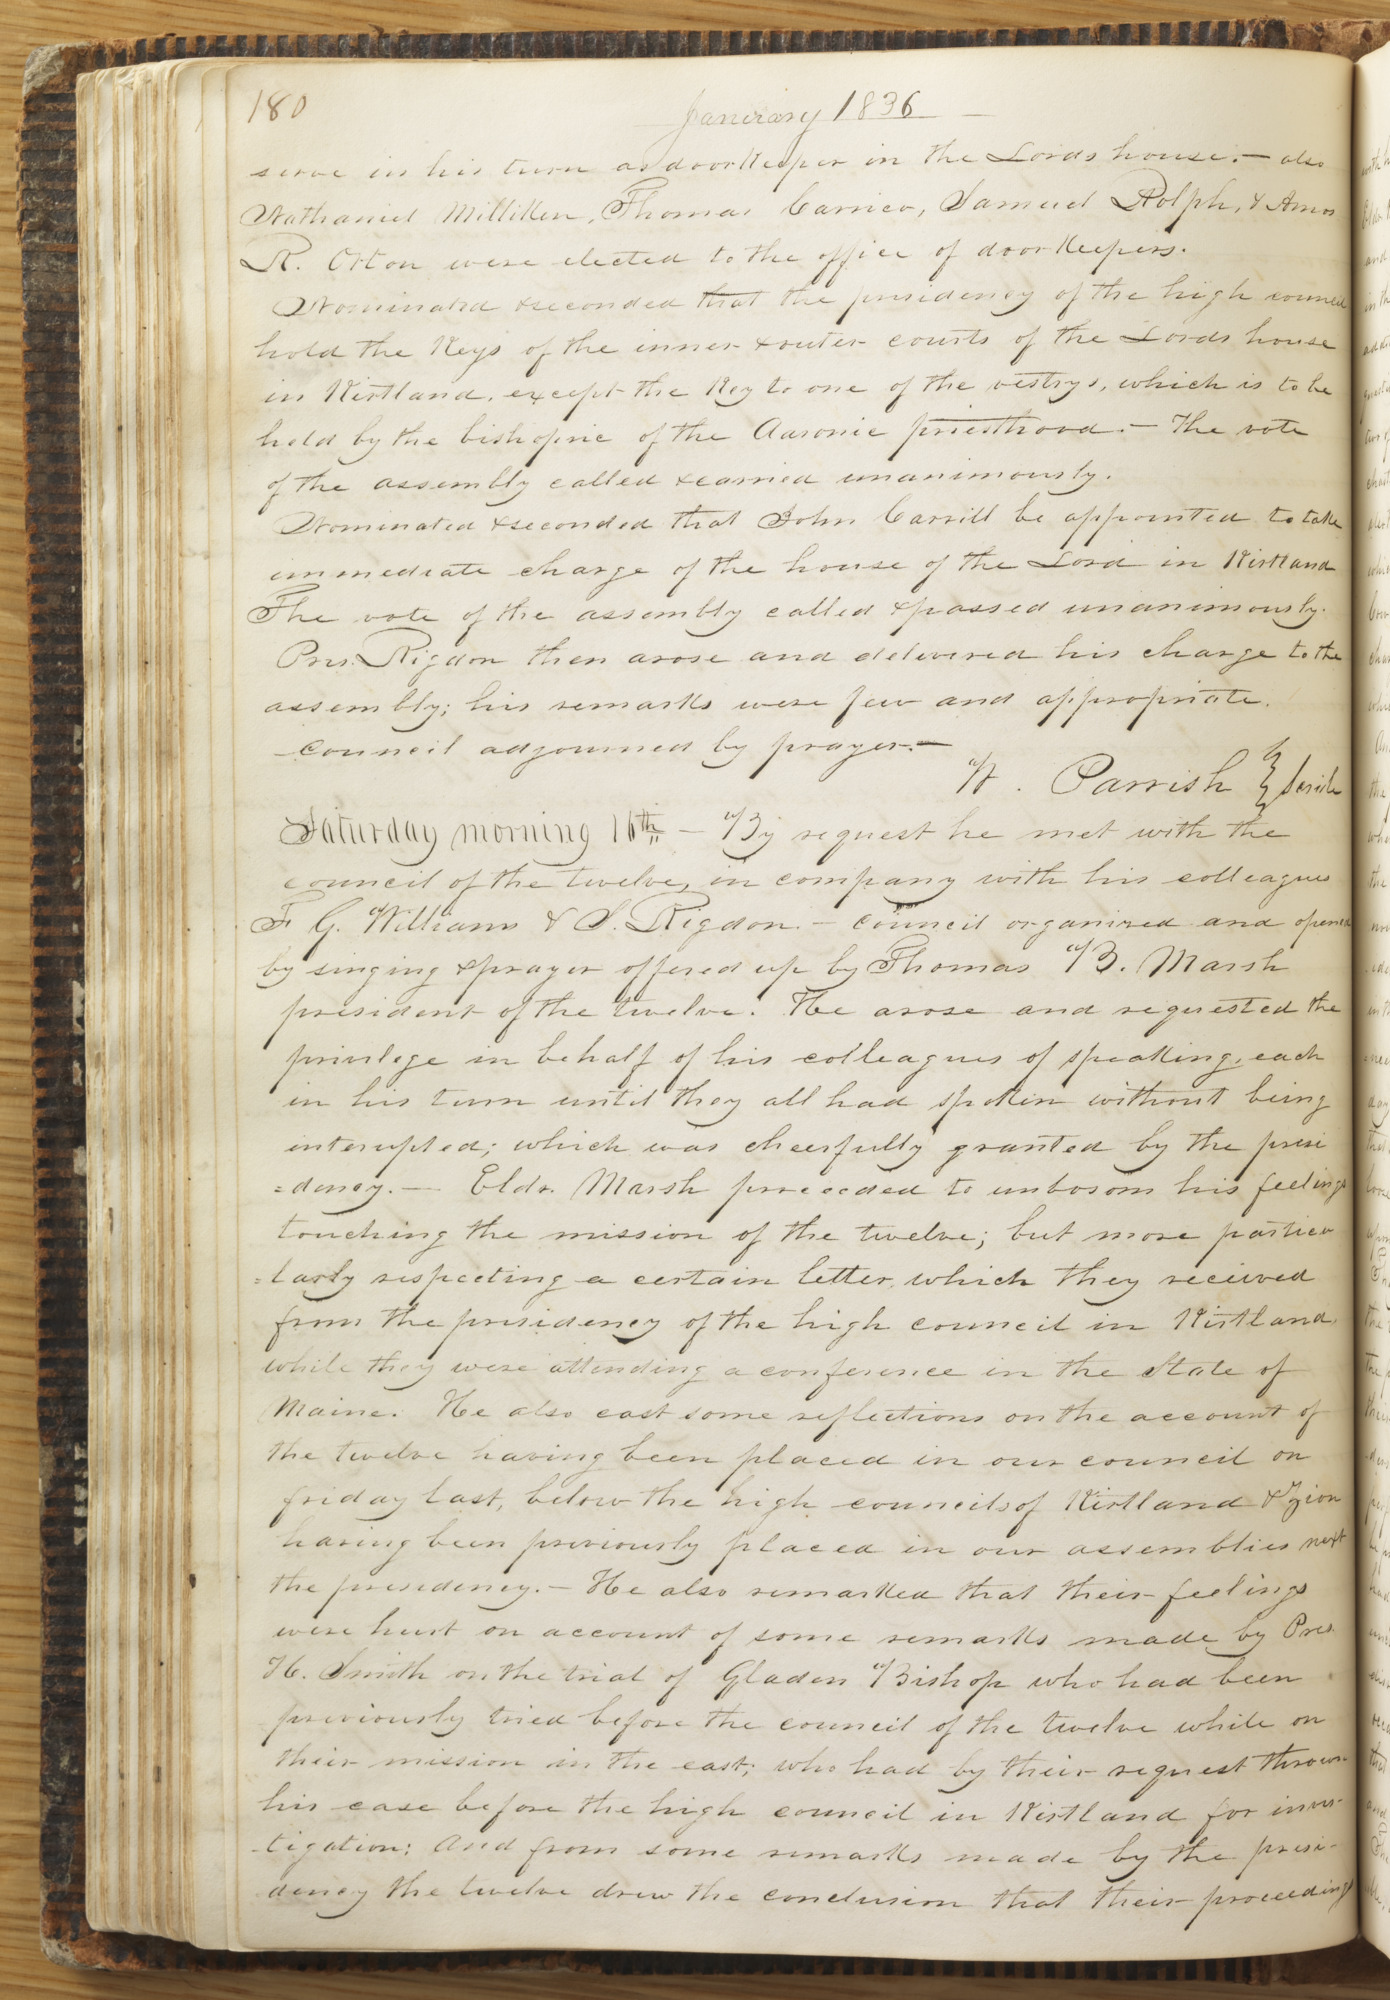 180
January 1836
serve in his turn as doorkeeper in the Lords house.— also
Nathaniel Milliken, Thomas Carrico, Samuel Rolph, & Amos
R. Orton were elected to the office of doorkeepers.
Nominated & seconded that the presidency of the high council
hold the keys of the inner & outer courts of the Lords house
in Kirtland, except the key to one of the vestrys, which is to be
held by the bishopric of the Aaronic priesthood.— The vote
of the assembly called & carried unanimously.
Nominated & seconded that John Carrill be appointed to take
immediate charge of the house of the Lord in Kirtland
The vote of the assembly called & passed unanimously.
Pres. Rigdon then arose and delivered his charge to the
assembly; his remarks were few and appropriate.
council adjourned by prayer.—
W. Parrish } Scribe
Saturday morning 16th — By request he met with the
council of the twelve, in company with his colleagues
F G. Williams & S. Rigdon.— council organized and opened
by singing & prayer offered up by Thomas B. Marsh
president of the twelve. He arose and requested the
privilege in behalf of his colleagues of speaking, each
in his turn until they all had spoken without being
interupted; which was cheerfully granted by the presi
=dency.— Eldr. Marsh proceeded to unbosom his feelings
touching the mission of the twelve; but more particu
=larly respecting a certain letter, which they received
from the presidency of the high council in Kirtland,
while they were attending a conference in the State of
Maine. He also cast some reflections on the account of
the twelve having been placed in our council on
friday last, below the high councils of Kirtland & Zion
having been previously placed in our assemblies next
the presidency.— He also remarked that their feelings
were hurt on account of some remarks made by Pres.
H. Smith on the trial of Gladen Bishop who had been
previously tried before the council of the twelve while on
their mission in the east; who had by their request thrown
his case before the high council in Kirtland for inves-
-tigation; and from some remarks made by the presi-
dency the twelve drew the conclusion that their proceedings